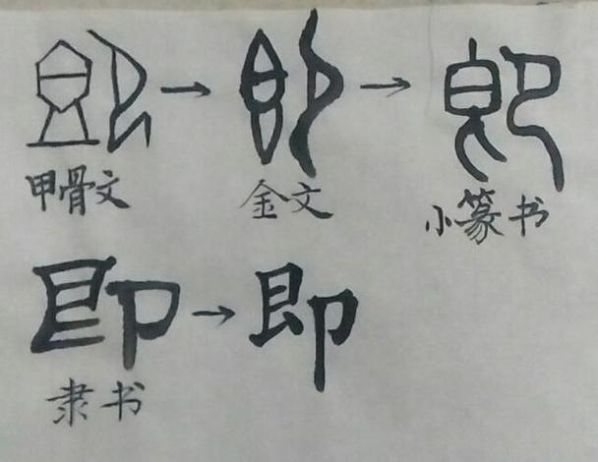 即→即→即
甲骨文 金文 小篆书
即→即
隶书